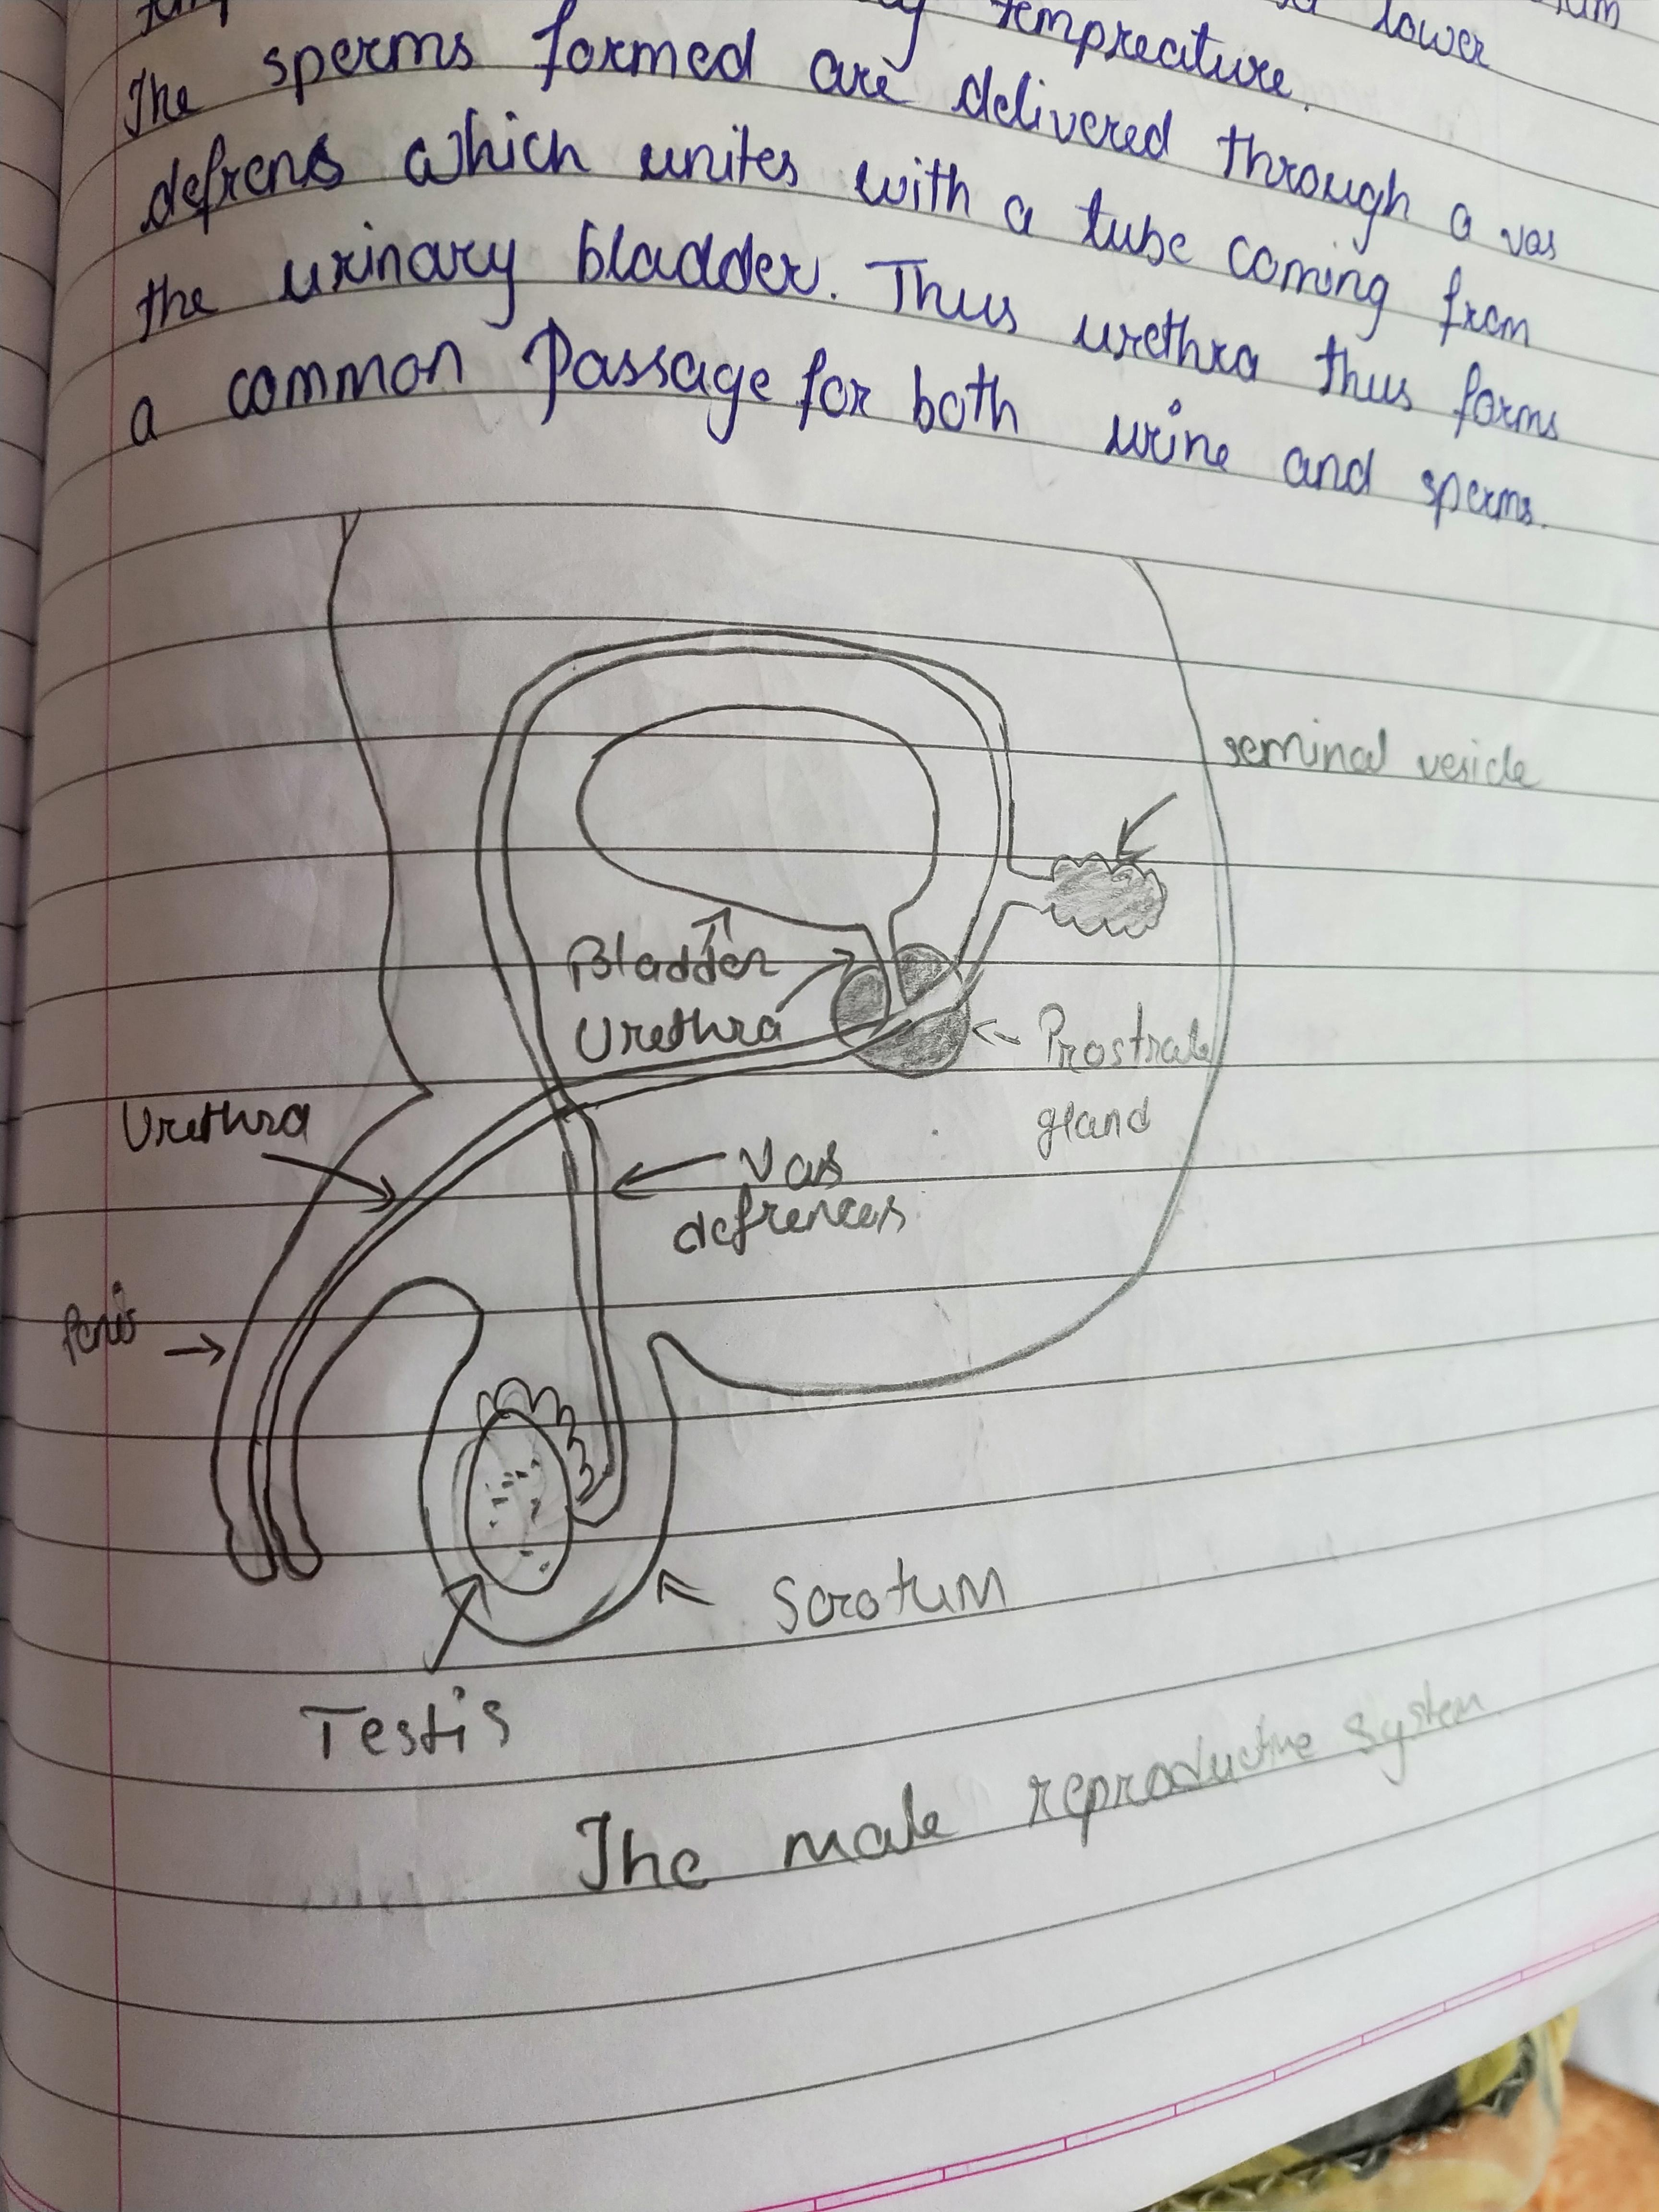 tempreature. lower
The sperms formed are delivered through a vas
defrens which unites with a tube coming from
the urinary bladder. Thus urethra thus forms
a common Passage for both urine and sperms.
seminal vesicle
Bladder
Urethra
Prostrate
gland
Urethra
Vas
defrences
Penis
Scrotum
Testis
The male reproductive system